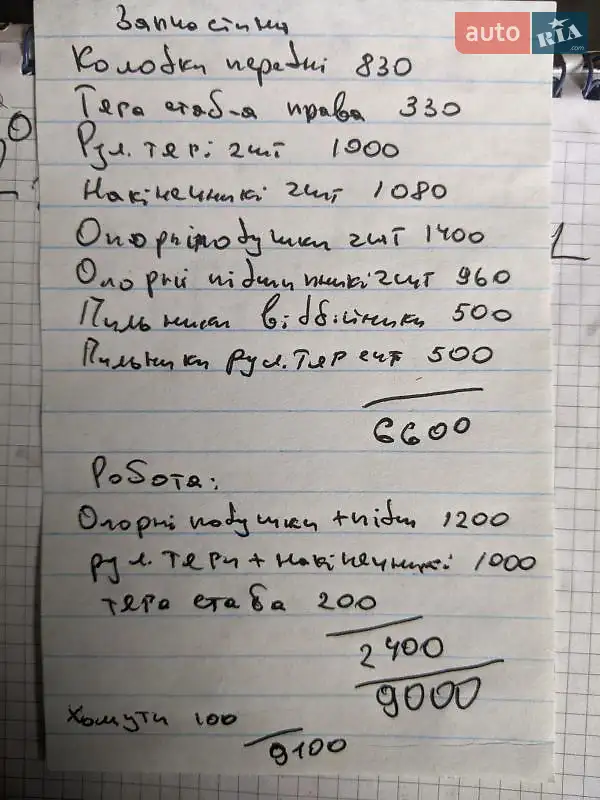 auto RIA .com
Запчастини
Колодки передні 830
Тяга стаб-а права 330
Рул. тягі 2шт 1000
Накінечникі 2шт 1080
Опорні подушки 2шт 1400
Опорні підшипникі 2шт 960
Пильники відбійники 500
Пильники рул. тяг 2шт 500
6600
Робота:
Опорні подушки + підш 1200
рул. тяги + накінечникі 1000
тяга стаба 200
2400
9000
Хомути 100
9100